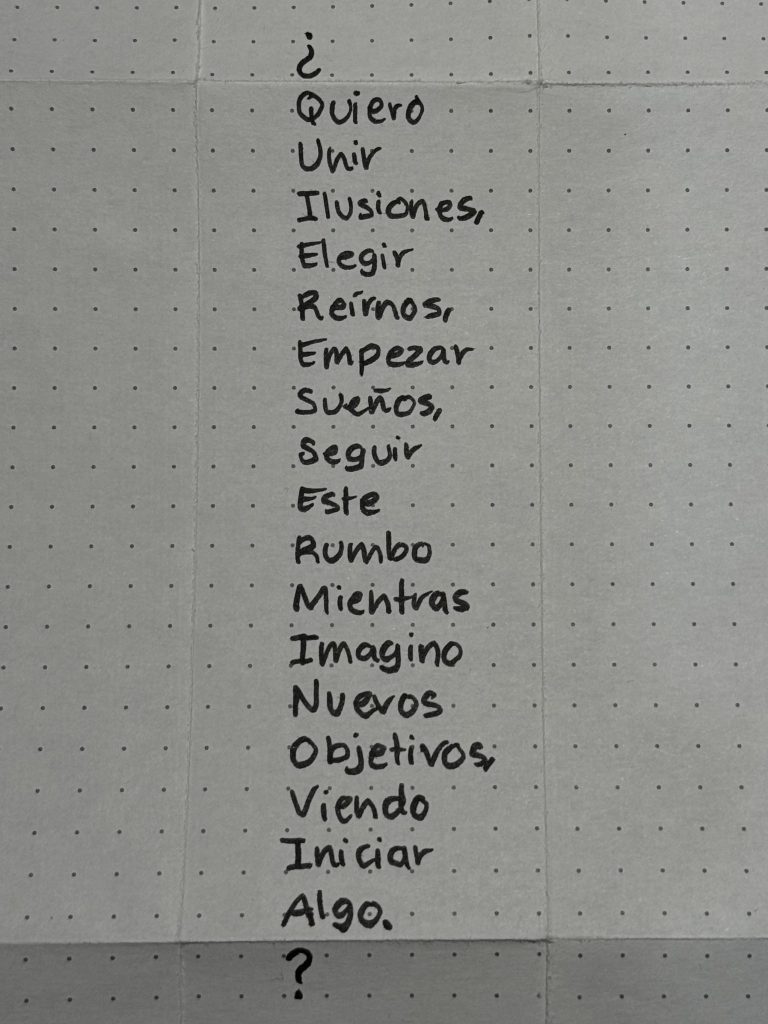 ¿
Quiero
Unir
Ilusiones,
Elegir
Reírnos,
Empezar
Sueños,
Seguir
Este
Rumbo
Mientras
Imagino
Nuevos
Objetivos,
Viendo
Iniciar
Algo.
?